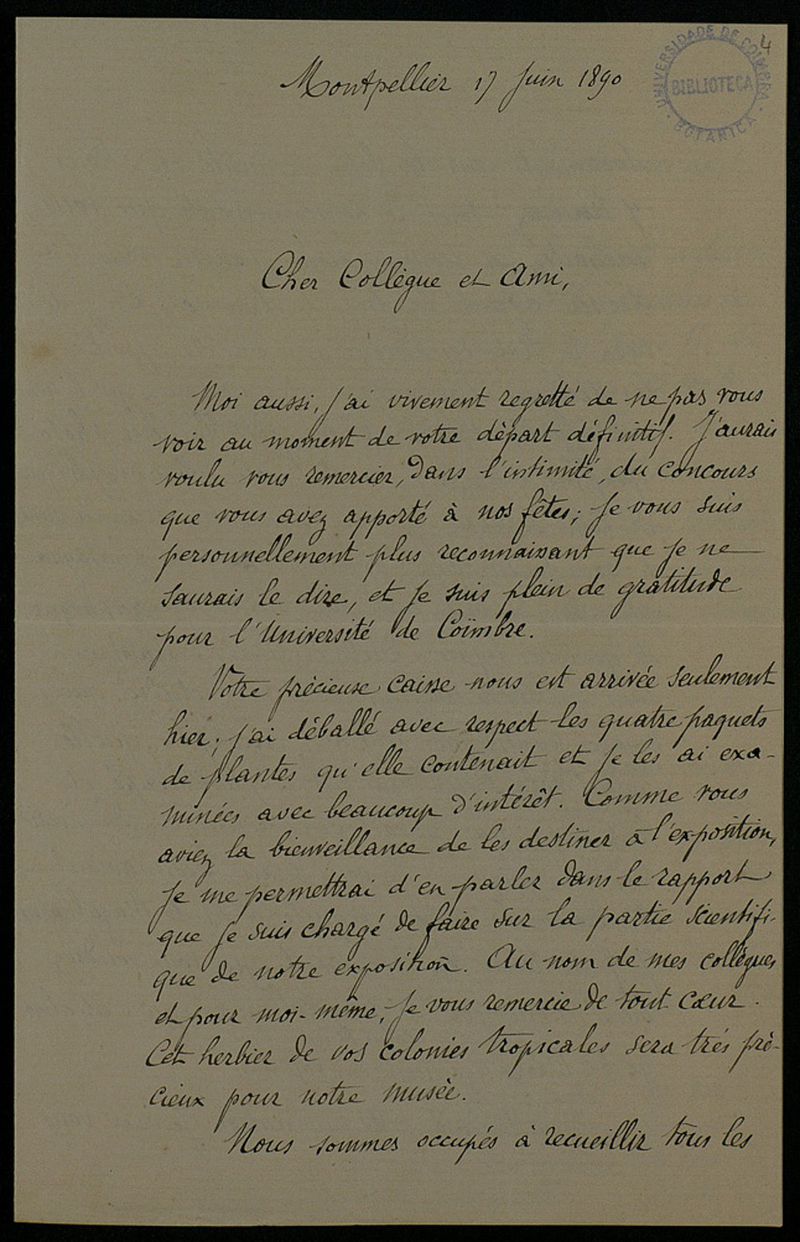 4
UNIVERSIDADE DE COIMBRA
BIBLIOTECA
BOTANICA
Montpellier 17 Juin 1890
Cher Collègue et Ami,
Moi aussi, j'ai vivement regretté de ne pas vous
voir au moment de votre départ définitif. J'aurais
voulu vous remercier, dans l'intimité, du concours
que vous avez apporté à nos fêtes; je vous suis
personnellement plus reconnaissant que je ne
saurais le dire, et je suis plein de gratitude
pour l'Université de Coïmbre.
Votre précieuse caisse nous est arrivée seulement
hier; j'ai déballé avec respect les quatre paquets
de plantes qu'elle contenait et je les ai exa-
minées avec beaucoup d'intérêt. Comme vous
aviez la bienveillance de les destiner à l'exposition,
je me permettrai d'en parler dans le rapport
que je suis chargé de faire sur la partie scientifi-
que de notre exposition. Au nom de mes collègues
et pour moi-même, je vous remercie de tout cœur.
Cet herbier de vos colonies tropicales sera très pré-
cieux pour notre musée.
Nous sommes occupés à recueillir tous les